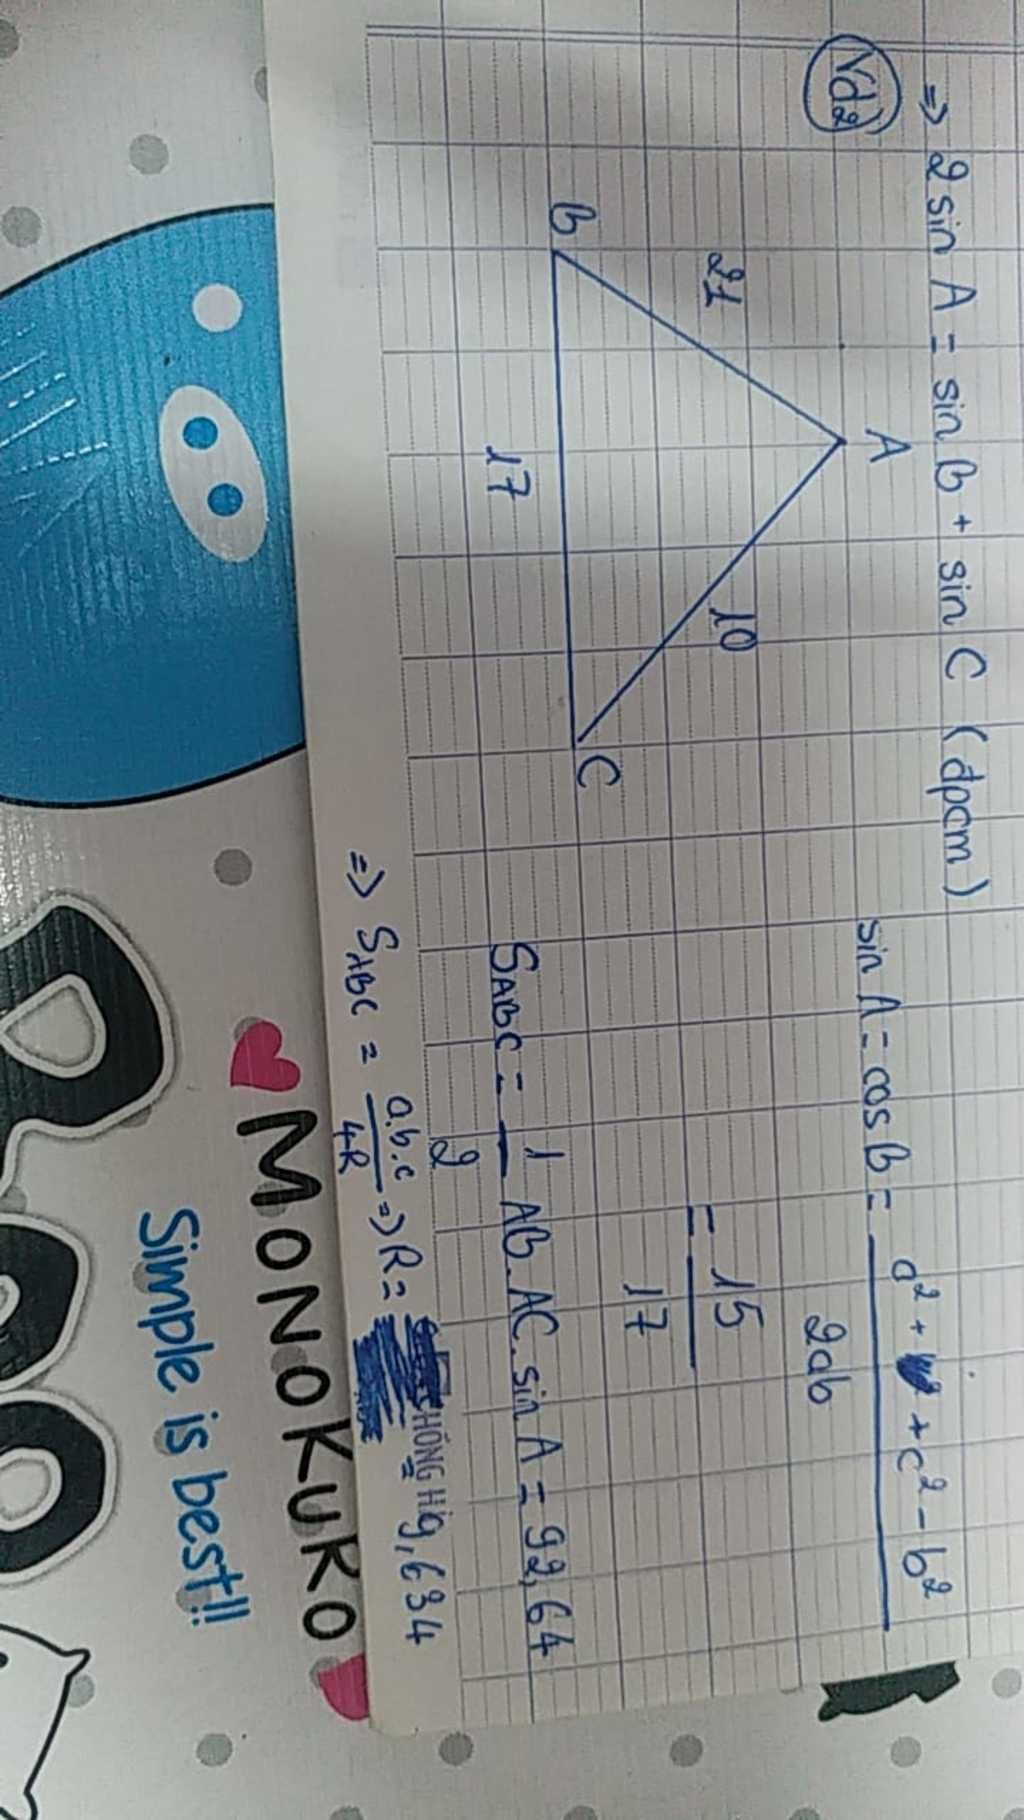 => 2 sin A = sin B + sin C (đpcm)
Vd2
A
21
10
B
C
17
sin A = cos B = a² + c² - b²
2ab
= 15
17
SABC = 1 AB. AC. sin A = 92,64
2
=> SABC = a.b.c => R = = 9,634
4R
MONOKURO
Simple is best!!